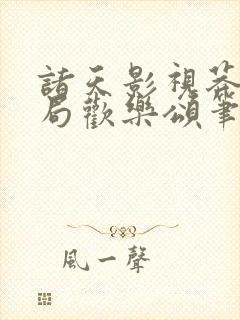 諸天影視蓉
局歡樂頌筆
風一聲